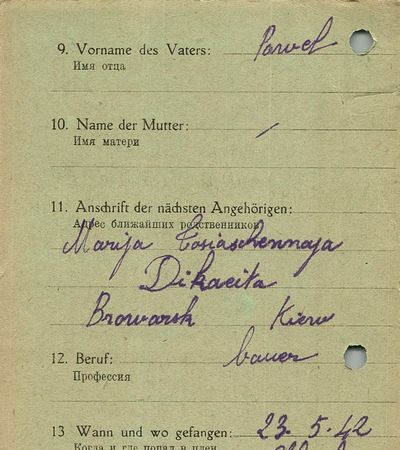 9. Vorname des Vaters: Pawel
Имя отца
10. Name der Mutter: –
Имя матери
11. Anschrift der nächsten Angehörigen:
Адрес ближайших родственников
Marija
Browarsk Kiew
12. Beruf: bauer
Профессия
13 Wann und wo gefangen: 23. 5. 42
Когда и где попал в плен